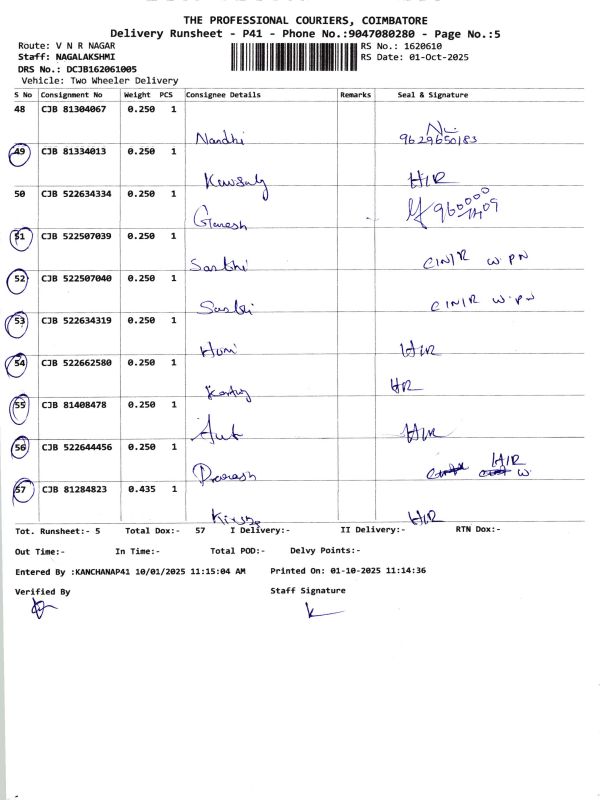 THE PROFESSIONAL COURIERS, COIMBATORE
Delivery Runsheet - P41 - Phone No.:9047080280 - Page No.:5
Route: V N R NAGAR
RS No.: 1620610
Staff: NAGALAKSHMI
RS Date: 01-Oct-2025
DRS No.: DCJB162061005
Vehicle: Two Wheeler Delivery
S No Consignment No Weight PCS Consignee Details Remarks Seal & Signature
48 CJB 81304067 0.250 1
Nandhi 9629650183
49 CJB 81334013 0.250 1
H/R
50 CJB 522634334 0.250 1
Ganesh
51 CJB 522507039 0.250 1
52 CJB 522507040 0.250 1
53 CJB 522634319 0.250 1
H/R
54 CJB 522662580 0.250 1
HR
55 CJB 81408478 0.250 1
H/R
56 CJB 522644456 0.250 1
H/R
57 CJB 81284823 0.435 1
H/R
Tot. Runsheet:- 5 Total Dox:- 57 I Delivery:- II Delivery:- RTN Dox:-
Out Time:- In Time:- Total POD:- Delvy Points:-
Entered By :KANCHANAP41 10/01/2025 11:15:04 AM Printed On: 01-10-2025 11:14:36
Verified By Staff Signature